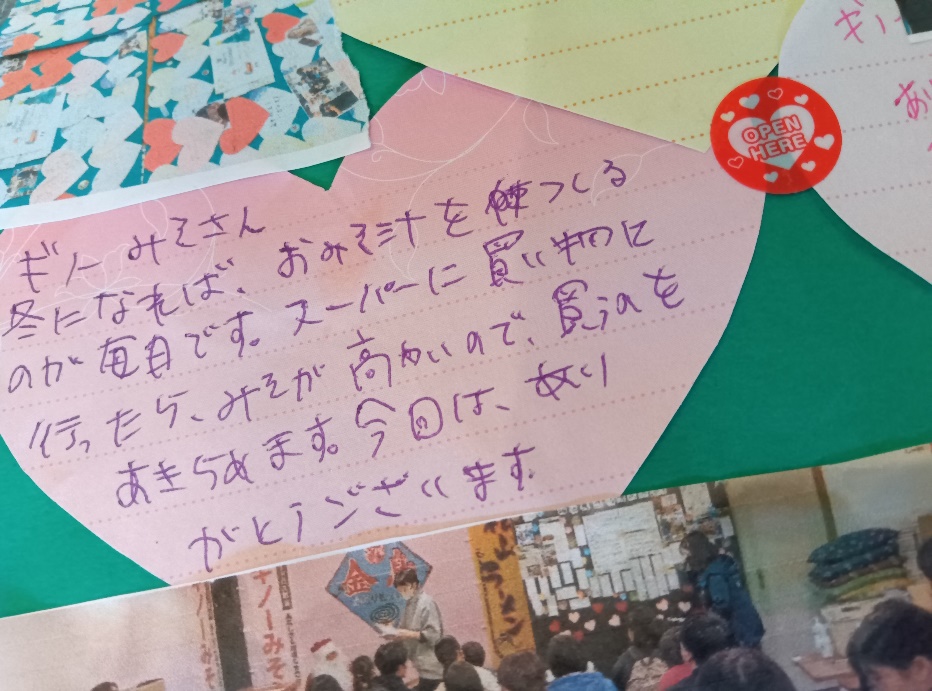 ギノーみそさん
冬になれば、おみそ汁をつくる
のが毎日です。スーパーに買い物に
行ったら、みそが高かいので、買うのを
あきらめます。今回は、あり
がとうございます。
OPEN
HERE
ギノー
あり
ギノーみそ